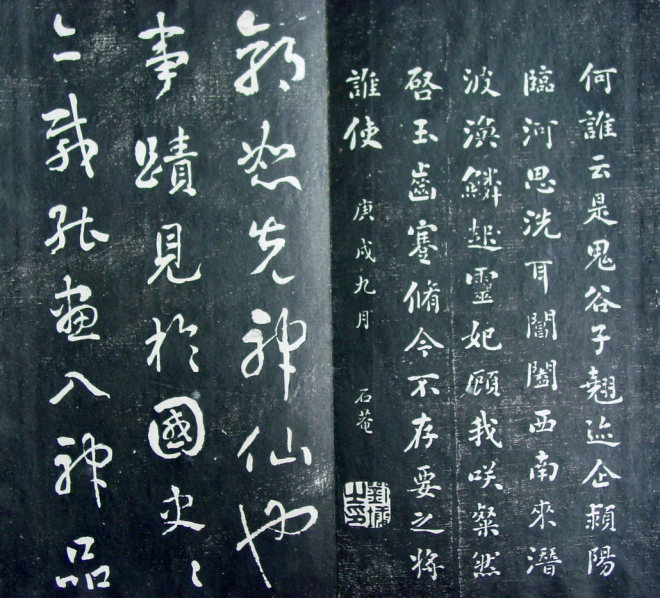 何誰云是鬼谷子翹迹企潁陽
臨河思洗耳閶闔西南來潛
波渙鱗起靈妃顧我咲粲然
啓玉齒蹇脩今不存要之將
誰使 庚戌九月 石菴
郭恕先神仙也
事蹟見於國史〻
載畫入神品